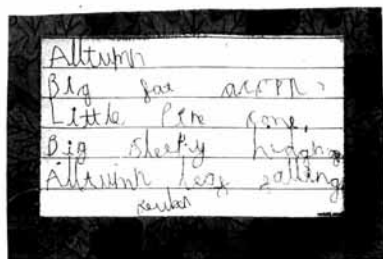 Autumn
Big fat acorn,
Little Pine cone,
Big sleepy hedghog
Autumn leaf falling